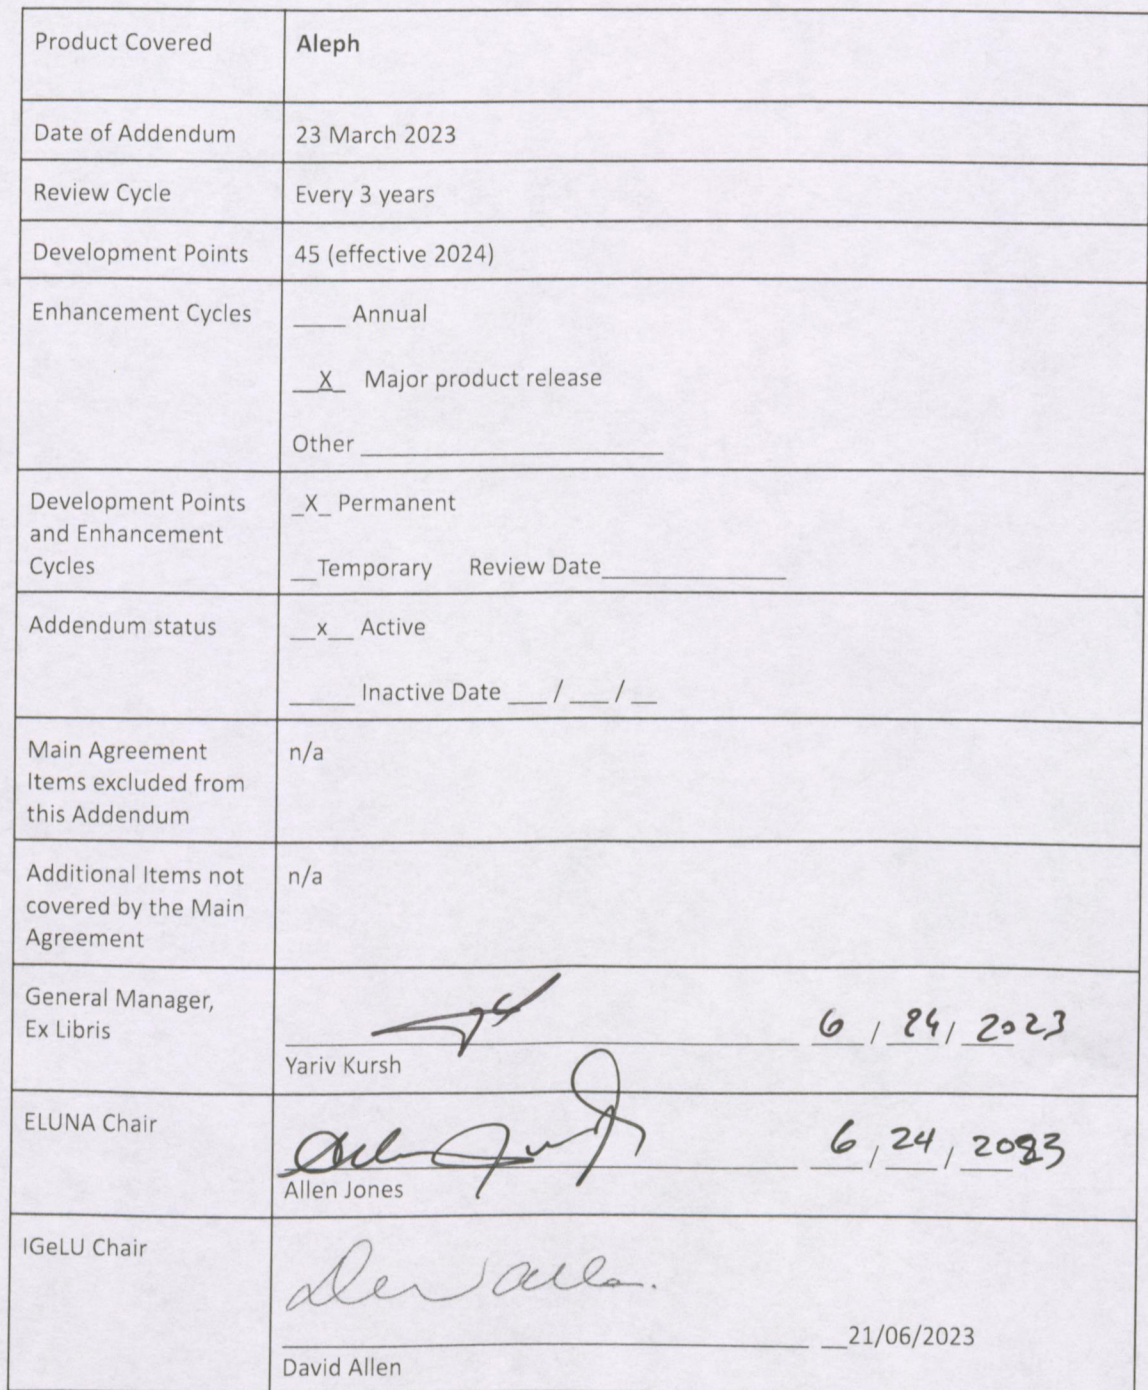 Product Covered
Aleph
Date of Addendum
23 March 2023
Review Cycle
Every 3 years
Development Points
45 (effective 2024)
Enhancement Cycles
____ Annual
__X_ Major product release
Other ______________________
Development Points
and Enhancement
Cycles
_X_ Permanent
__Temporary Review Date______________
Addendum status
__x__ Active
_____ Inactive Date ___ / ___ / __
Main Agreement
Items excluded from
this Addendum
n/a
Additional Items not
covered by the Main
Agreement
n/a
General Manager,
Ex Libris
6 / 24 / 2023
Yariv Kursh
ELUNA Chair
6 / 24 / 2023
Allen Jones
IGeLU Chair
__21/06/2023
David Allen